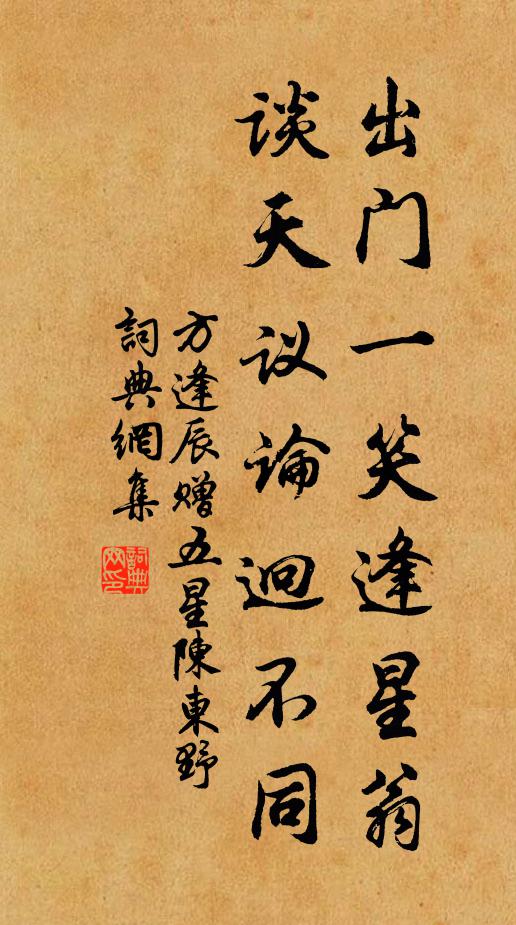 出门一笑逢星翁
谈天议论迥不同
方逢辰赠五星陳東野
詞典網集
詞典網印